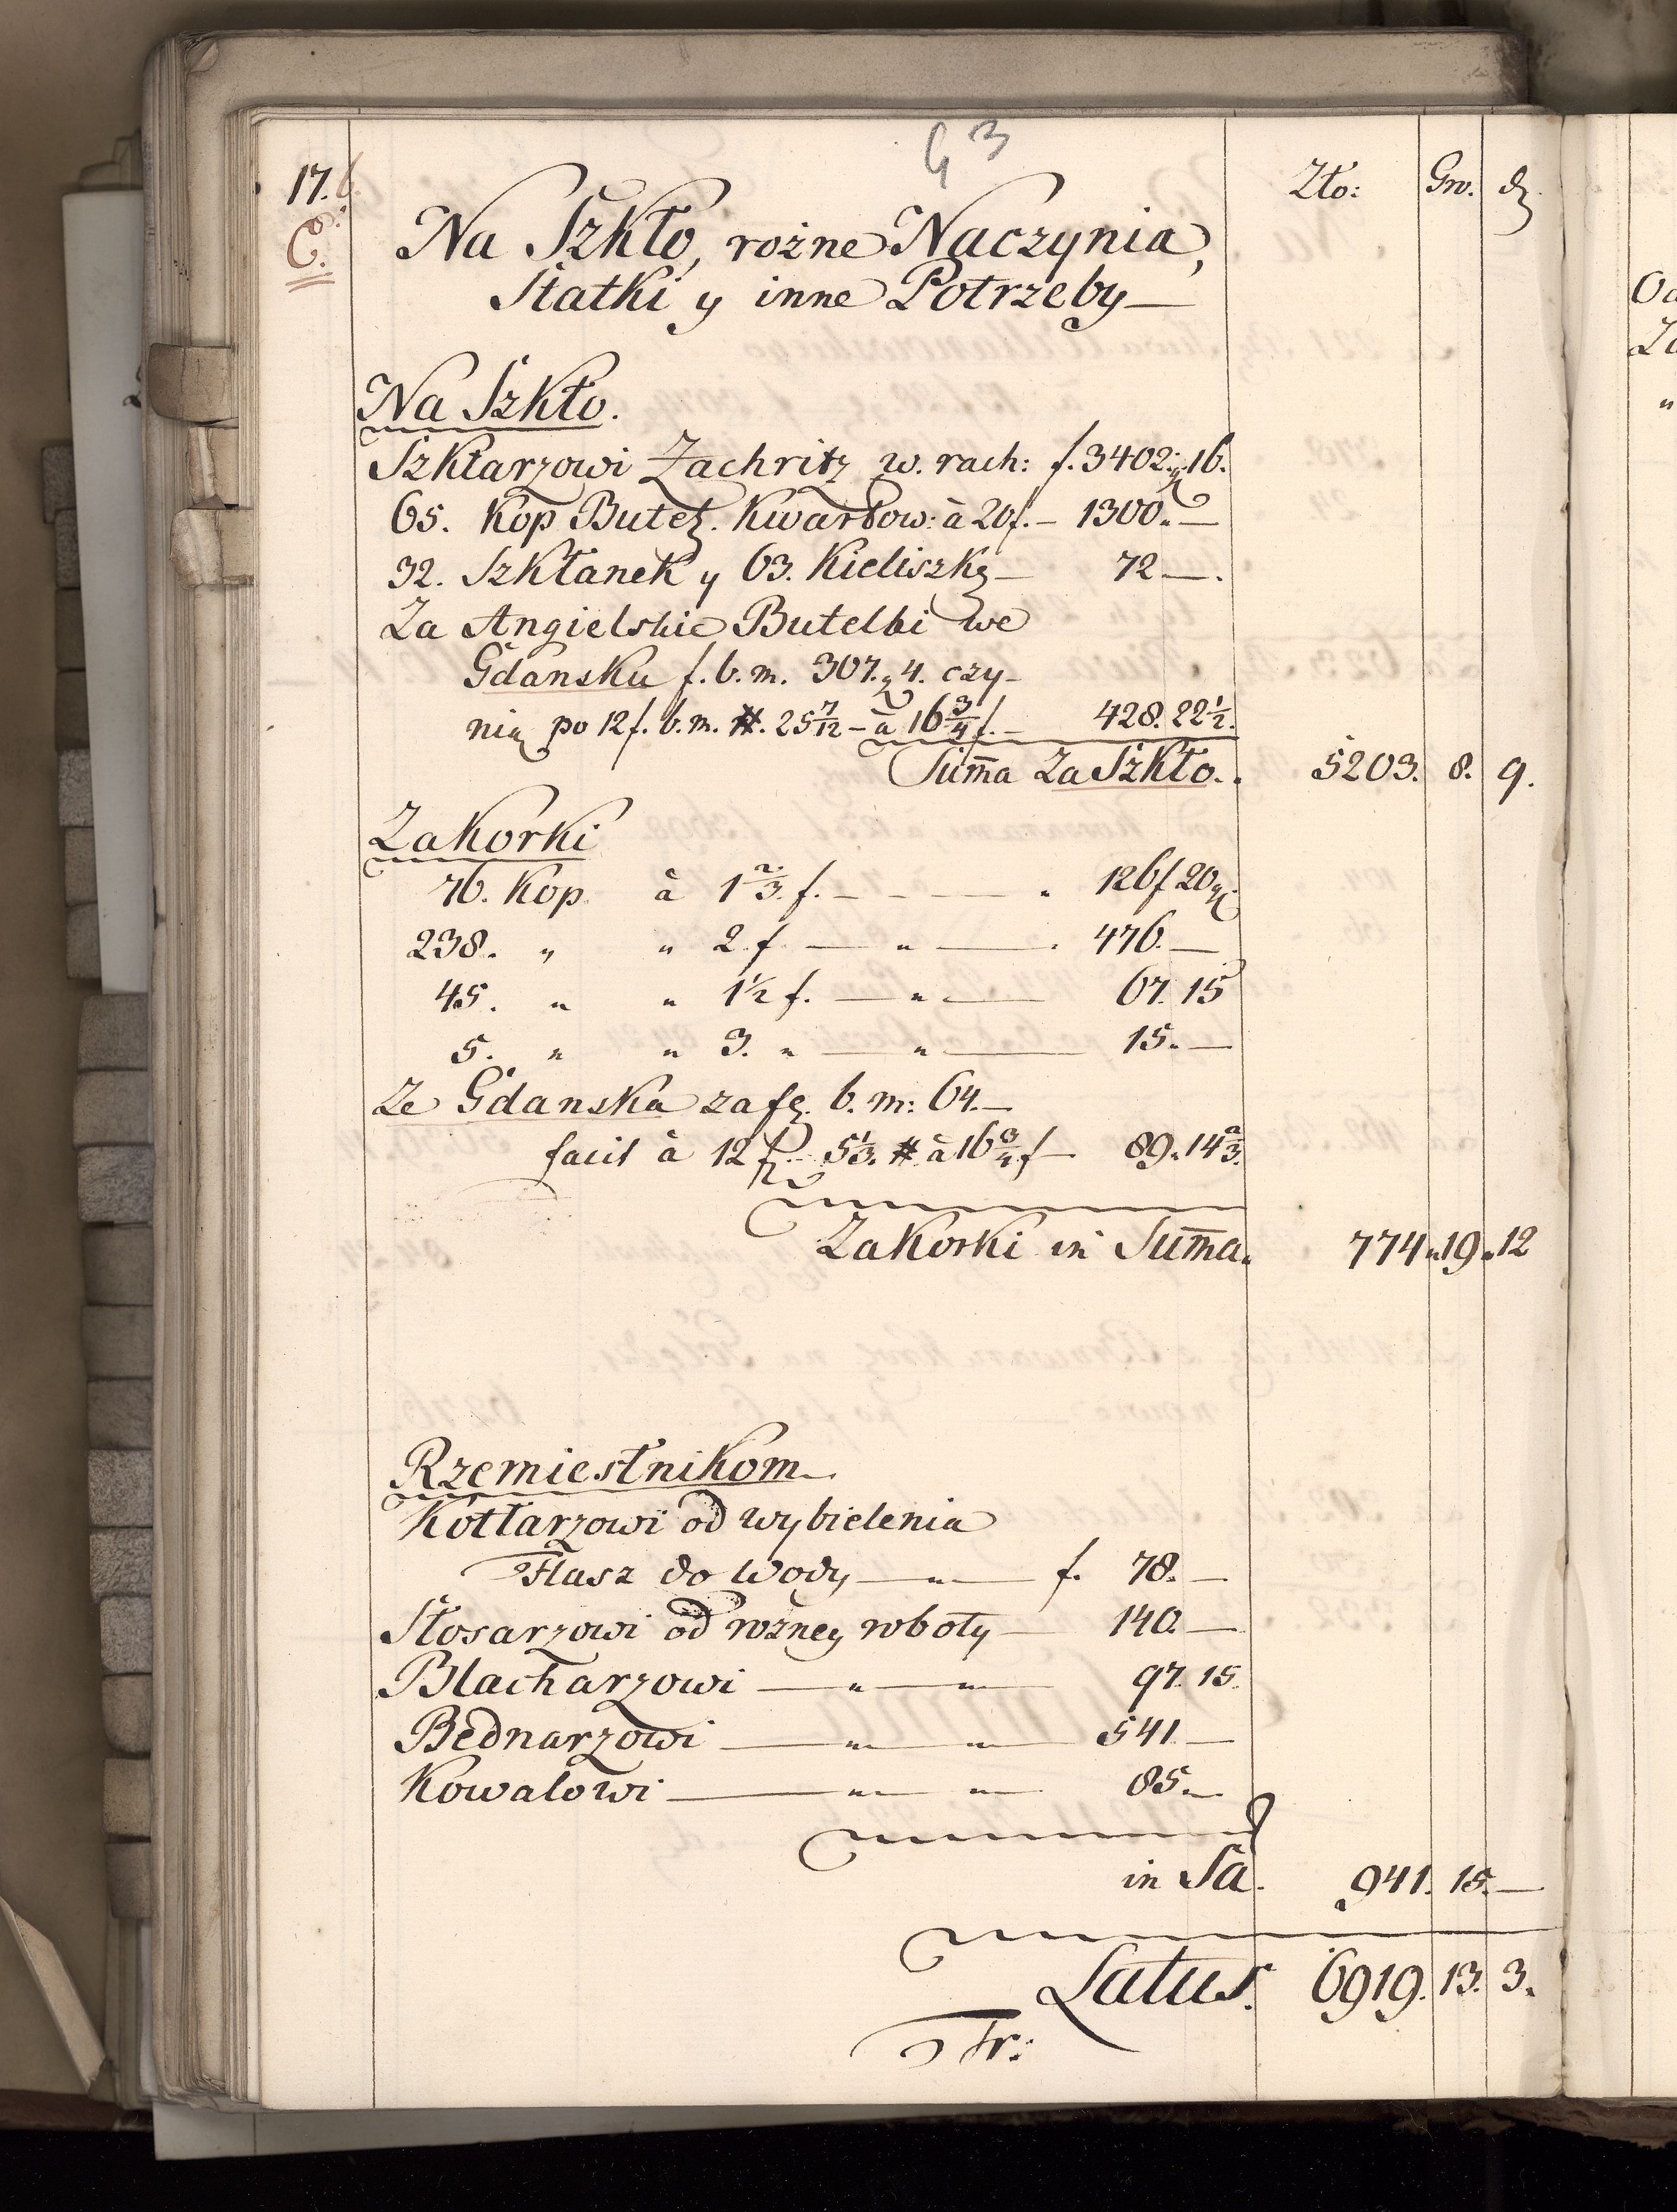 G 3
17. 6. Zło: Gr. dz.
C.
Na Szkło, rożne Naczynia,
Statki y inne Potrzeby —
Na Szkło.
Szklarzowi Zachritz w. rach: f. 3402. g. 16.
65. Kop Butel. Kwartow: à 20 f. — 1300. —
32. Szklanek y 63. Kieliszkę — 72 —.
Za Angielskie Butelki we
Gdansku f. b. m. 307. g 4. czy-
nią po 12 f. b. m. #. 25 7/12 — à 16 3/4 f. — 428. 22 1/2.
Sum̄a Za Szkło. . 5203. 8. 9.
Za Korki
76. Kop. à 1 2/3. f. — — — " 126 f 20 g.
238. " " 2 f — " — . 476. —
45. " " 1 1/2 f. — " — 67. 15
5. " " 3. " — " — 15. —
Ze Gdanska za fl. b. m: 64. —
facit à 12 f. 5 1/3. # à 16 3/4 f — 89. 14 2/3.
Za Korki in Sum̄a. 774. 19. 12
Rzemiestnikom.
Kotlarzowi od wybielenia
Flasz do Wody — " — f. 78. —
Słosarzowi od rożney roboty — 140. —
Blacharzowi — " — " — 97. 15.
Bednarzowi — " — " — 541 —
Kowalowi — " — " — 85. —
in Sa. 941. 15. —
Latus. 6919. 13. 3.
Tr: